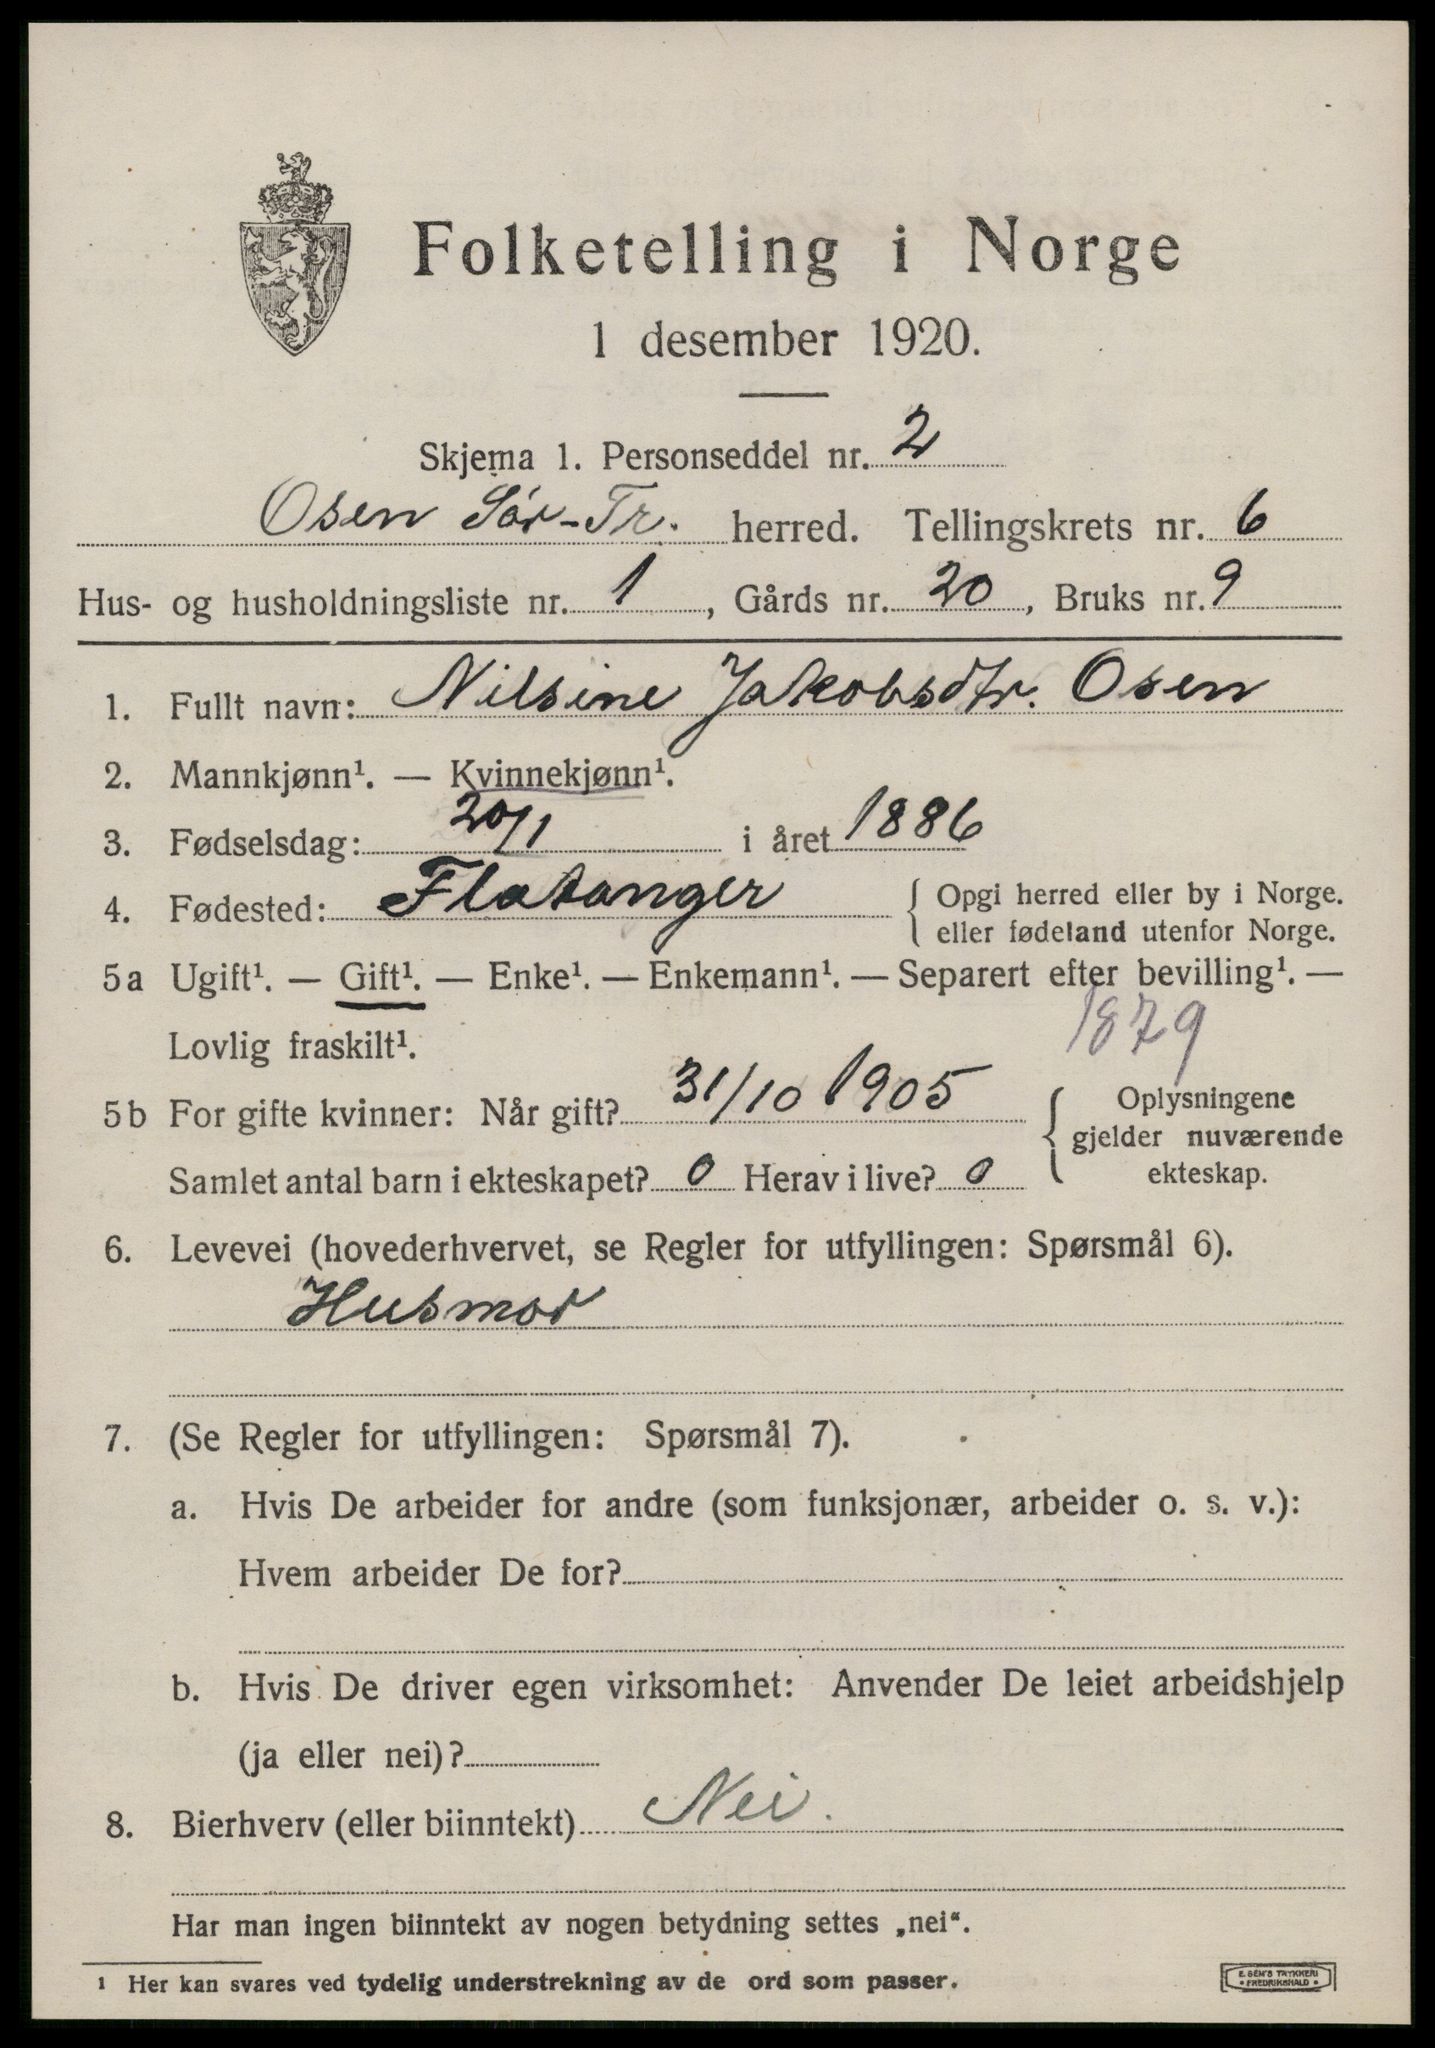 Folketelling i Norge
1 desember 1920.
Skjema 1. Personseddel nr. 2
Osen Sór-Tr. herred. Tellingskrets nr. 6
Hus- og husholdningsliste nr. 1, Gårds nr. 20, Bruks nr. 9
1. Fullt navn: Nilsine Jakobsdtr. Osen
2. Mannkjønn¹. — Kvinnekjønn¹.
3. Fødselsdag: 20/1 i året 1886
4. Fødested: Flatanger { Opgi herred eller by i Norge.
eller fødeland utenfor Norge.
5a Ugift¹. — Gift¹. — Enke¹. — Enkemann¹. — Separert efter bevilling¹. —
Lovlig fraskilt¹. 1879
5b For gifte kvinner: Når gift? 31/10 1905 { Oplysningene
gjelder nuværende
Samlet antal barn i ekteskapet? 0 Herav i live? 0 ekteskap.
6. Levevei (hovederhvervet, se Regler for utfyllingen: Spørsmål 6).
Husmor
7. (Se Regler for utfyllingen: Spørsmål 7).
a. Hvis De arbeider for andre (som funksjonær, arbeider o. s. v.):
Hvem arbeider De for?
b. Hvis De driver egen virksomhet: Anvender De leiet arbeidshjelp
(ja eller nei)?
8. Bierhverv (eller biinntekt) Nei.
Har man ingen biinntekt av nogen betydning settes „nei“.
¹ Her kan svares ved tydelig understrekning av de ord som passer.
E. SEM'S TRYKKERI
• FREDRIKSHALD •